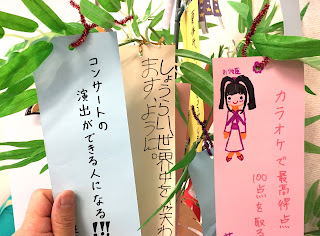 コンサートの
演出ができる人になる!!!
しょうらい世界中を笑わ
ますように。
カラオケで最高得点
100点を取る